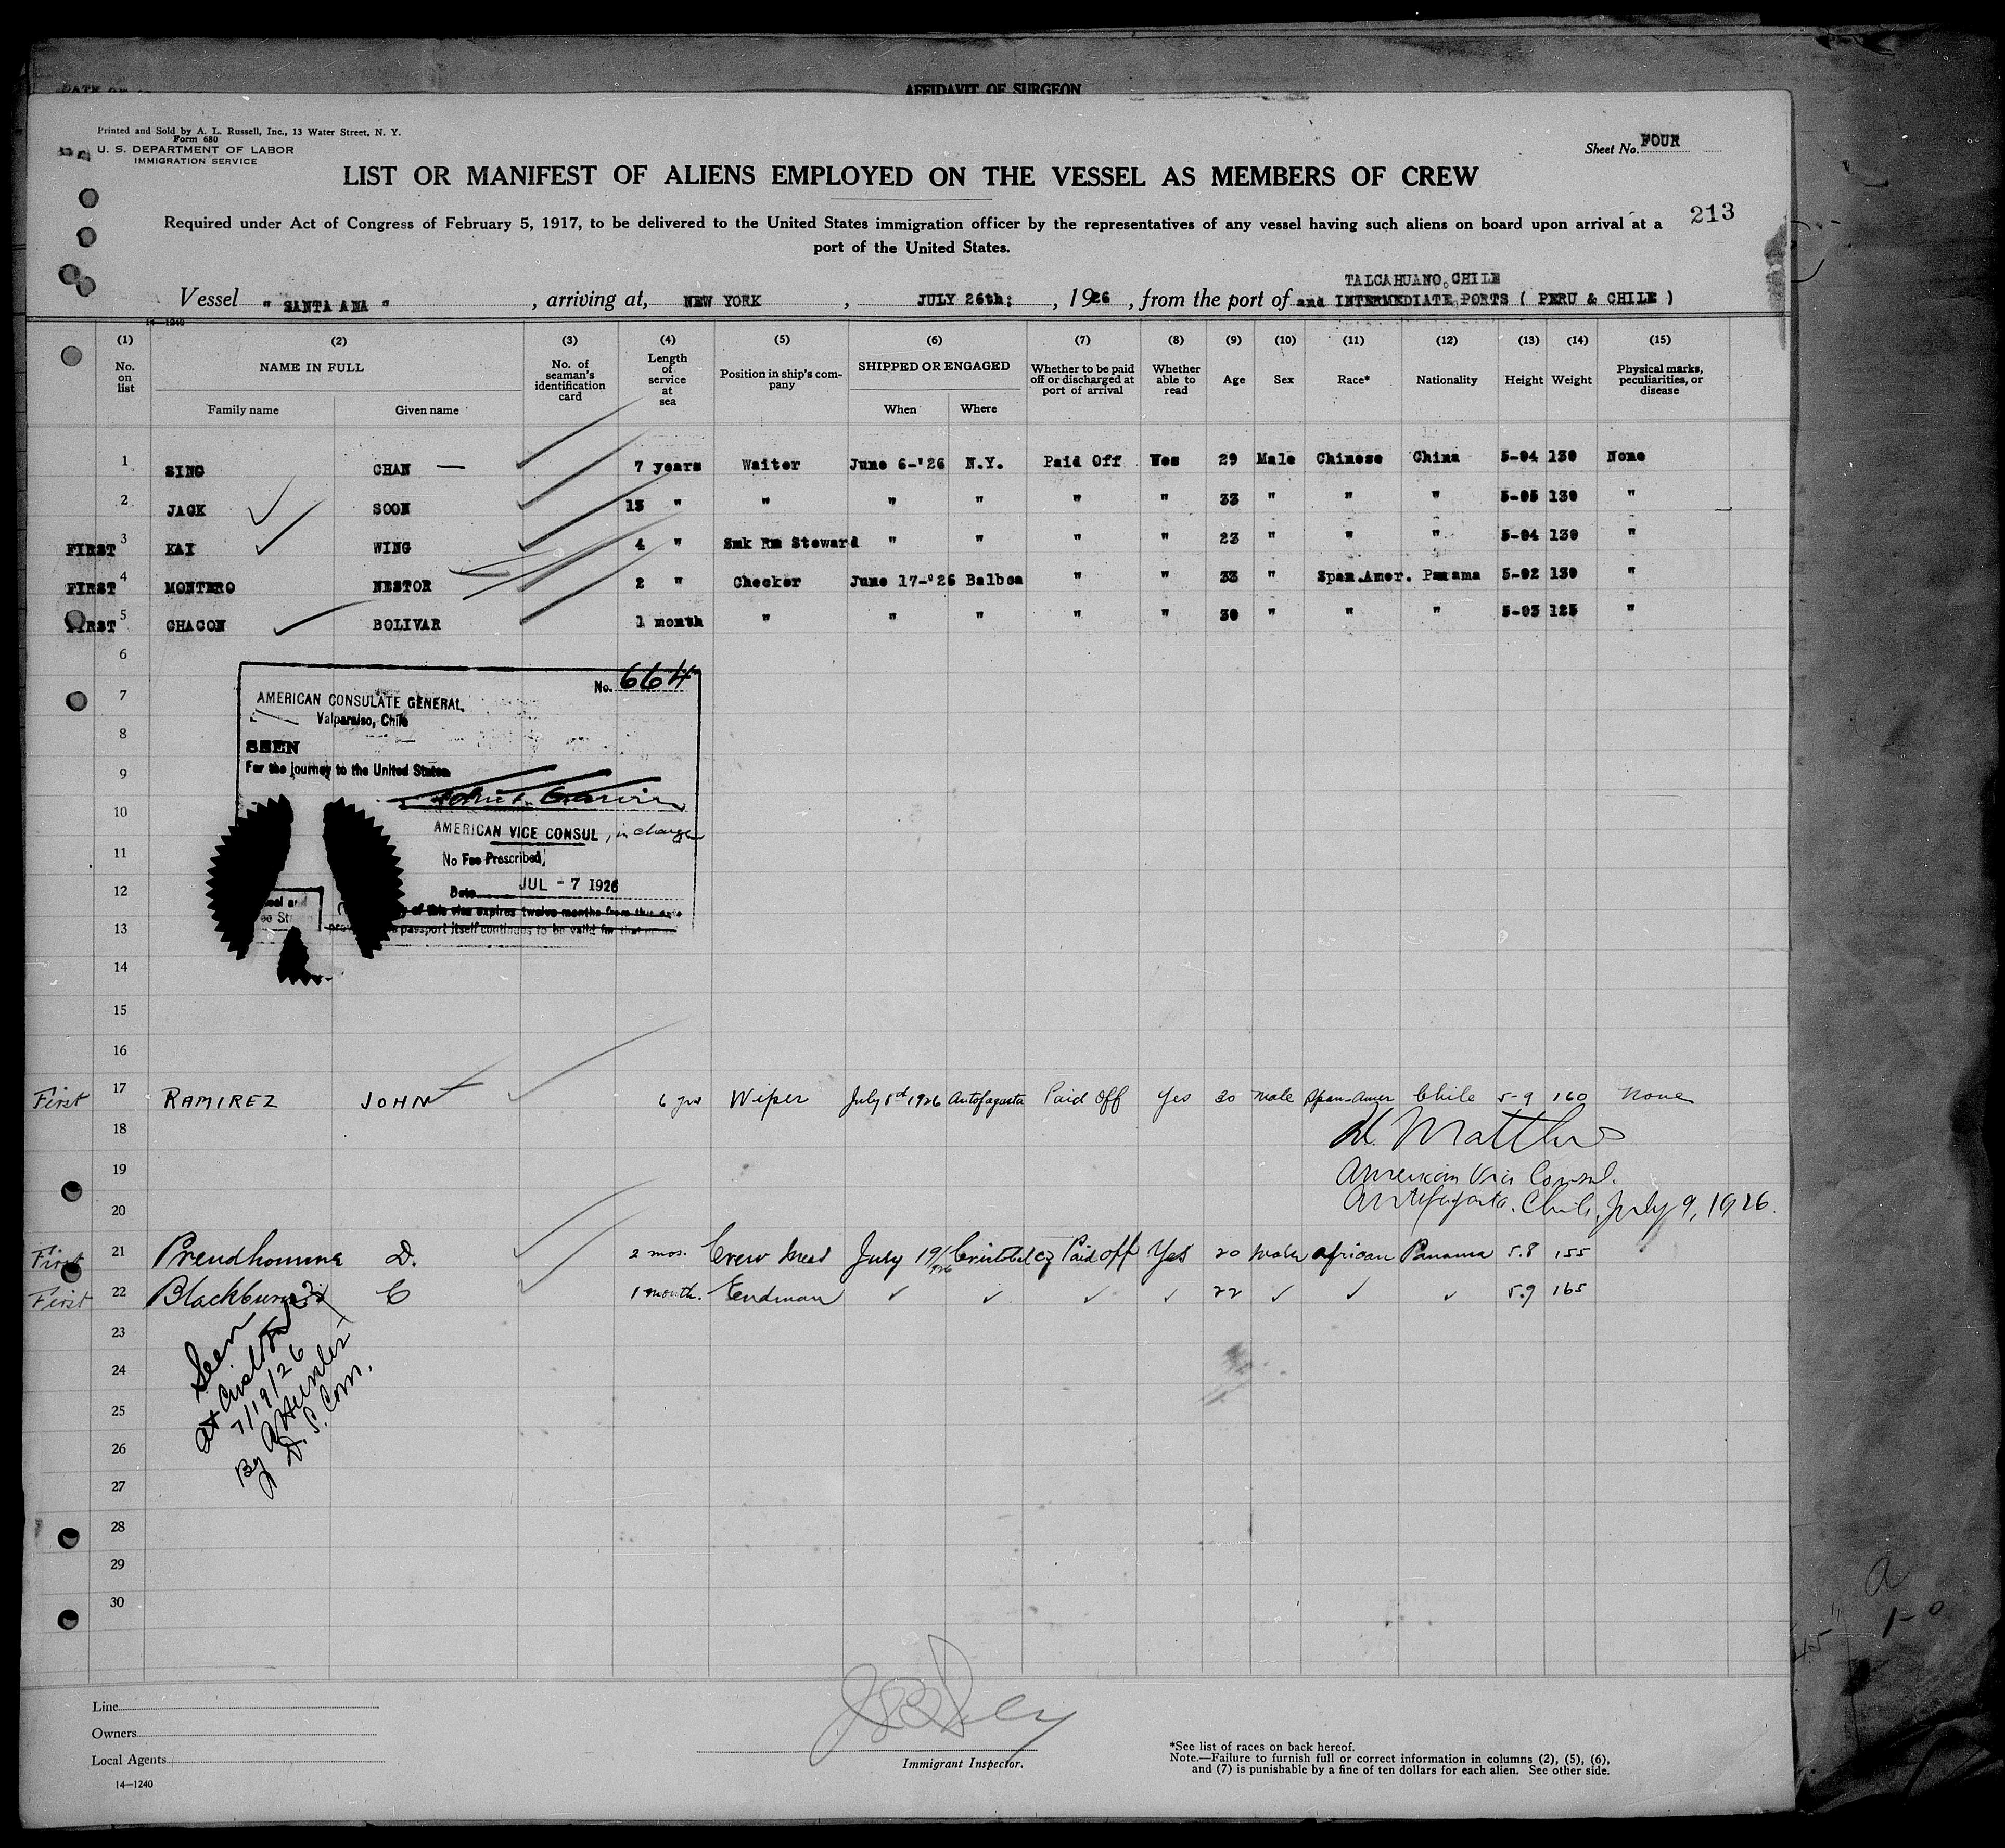 AFFIDAVIT OF SURGEON
Printed and Sold by A. L. Russell, Inc., 13 Water Street, N. Y.
Form 680
U. S. DEPARTMENT OF LABOR
IMMIGRATION SERVICE
Sheet No. FOUR
LIST OR MANIFEST OF ALIENS EMPLOYED ON THE VESSEL AS MEMBERS OF CREW
213
Required under Act of Congress of February 5, 1917, to be delivered to the United States immigration officer by the representatives of any vessel having such aliens on board upon arrival at a
port of the United States.
TALCAHUANO, CHILE
Vessel " SANTA ANA ", arriving at, NEW YORK, JULY 26th:, 1926, from the port of and INTERMEDIATE PORTS ( PERU & CHILE )
14—1240
(1) (2) (3) (4) (5) (6) (7) (8) (9) (10) (11) (12) (13) (14) (15)
No. on list NAME IN FULL No. of seaman's identification card Length of service at sea Position in ship's company SHIPPED OR ENGAGED Whether to be paid off or discharged at port of arrival Whether able to read Age Sex Race* Nationality Height Weight Physical marks, peculiarities, or disease
Family name Given name When Where
1 SING CHAN — 7 years Waiter June 6-'26 N.Y. Paid Off Yes 29 Male Chinese China 5-04 130 None
2 JACK SOON 13 " " " " " " 33 " " " 5-05 130 "
FIRST 3 KAI WING 4 " Smk Rm Steward " " " " 23 " " " 5-04 130 "
FIRST 4 MONTERO NESTOR 2 " Checker June 17-'26 Balboa " " 33 " Span.Amer. Panama 5-02 130 "
FIRST 5 CHACON BOLIVAR 1 month " " " " " 30 " " " 5-03 125 "
6
7
8
9
10
11
12
13
14
15
16
No. 664
AMERICAN CONSULATE GENERAL,
Valparaiso, Chile
SEEN
For the journey to the United States
AMERICAN VICE CONSUL, in charge
No Fee Prescribed,
Date JUL - 7 1926
of this visa expires twelve months from this date
passport itself continues to be valid for that
First 17 RAMIREZ JOHN 6 yrs Wiper July 8th 1926 Antofagasta Paid Off Yes 30 Male Span-Amer Chile 5-9 160 None
18
H. Matthews
19
American Vice Consul.
20
Antofagasta. Chile, July 9, 1926.
First 21 Preudhomme D. 2 mos. Crew Mess July 19/1926 Cristobal CZ Paid off Yes 20 Male African Panama 5.8 155
First 22 Blackburn C 1 month. Endman ✓ ✓ ✓ ✓ 22 ✓ ✓ ✓ 5.9 165
23
24
25
26
27
28
29
30
Seen
at Cristobal
7/19/26
By A Hunter
D. S. Com.
Line
Owners
Local Agents
14—1240
Immigrant Inspector.
*See list of races on back hereof.
Note.—Failure to furnish full or correct information in columns (2), (5), (6),
and (7) is punishable by a fine of ten dollars for each alien. See other side.